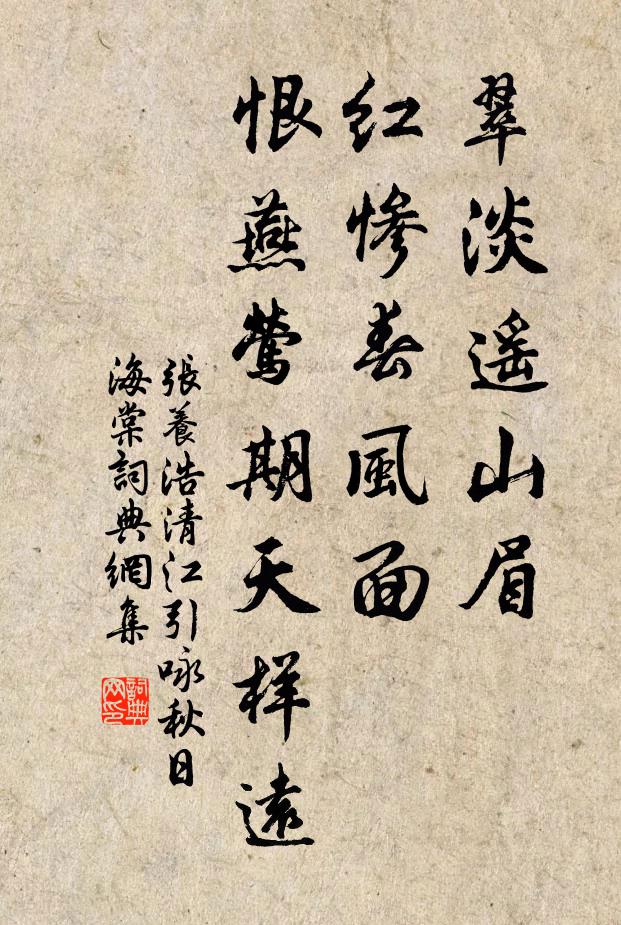 翠淡遥山眉
红惨春風面
恨燕莺期天样遠
張養浩清江引咏秋日
海棠詞典網集
詞典网印